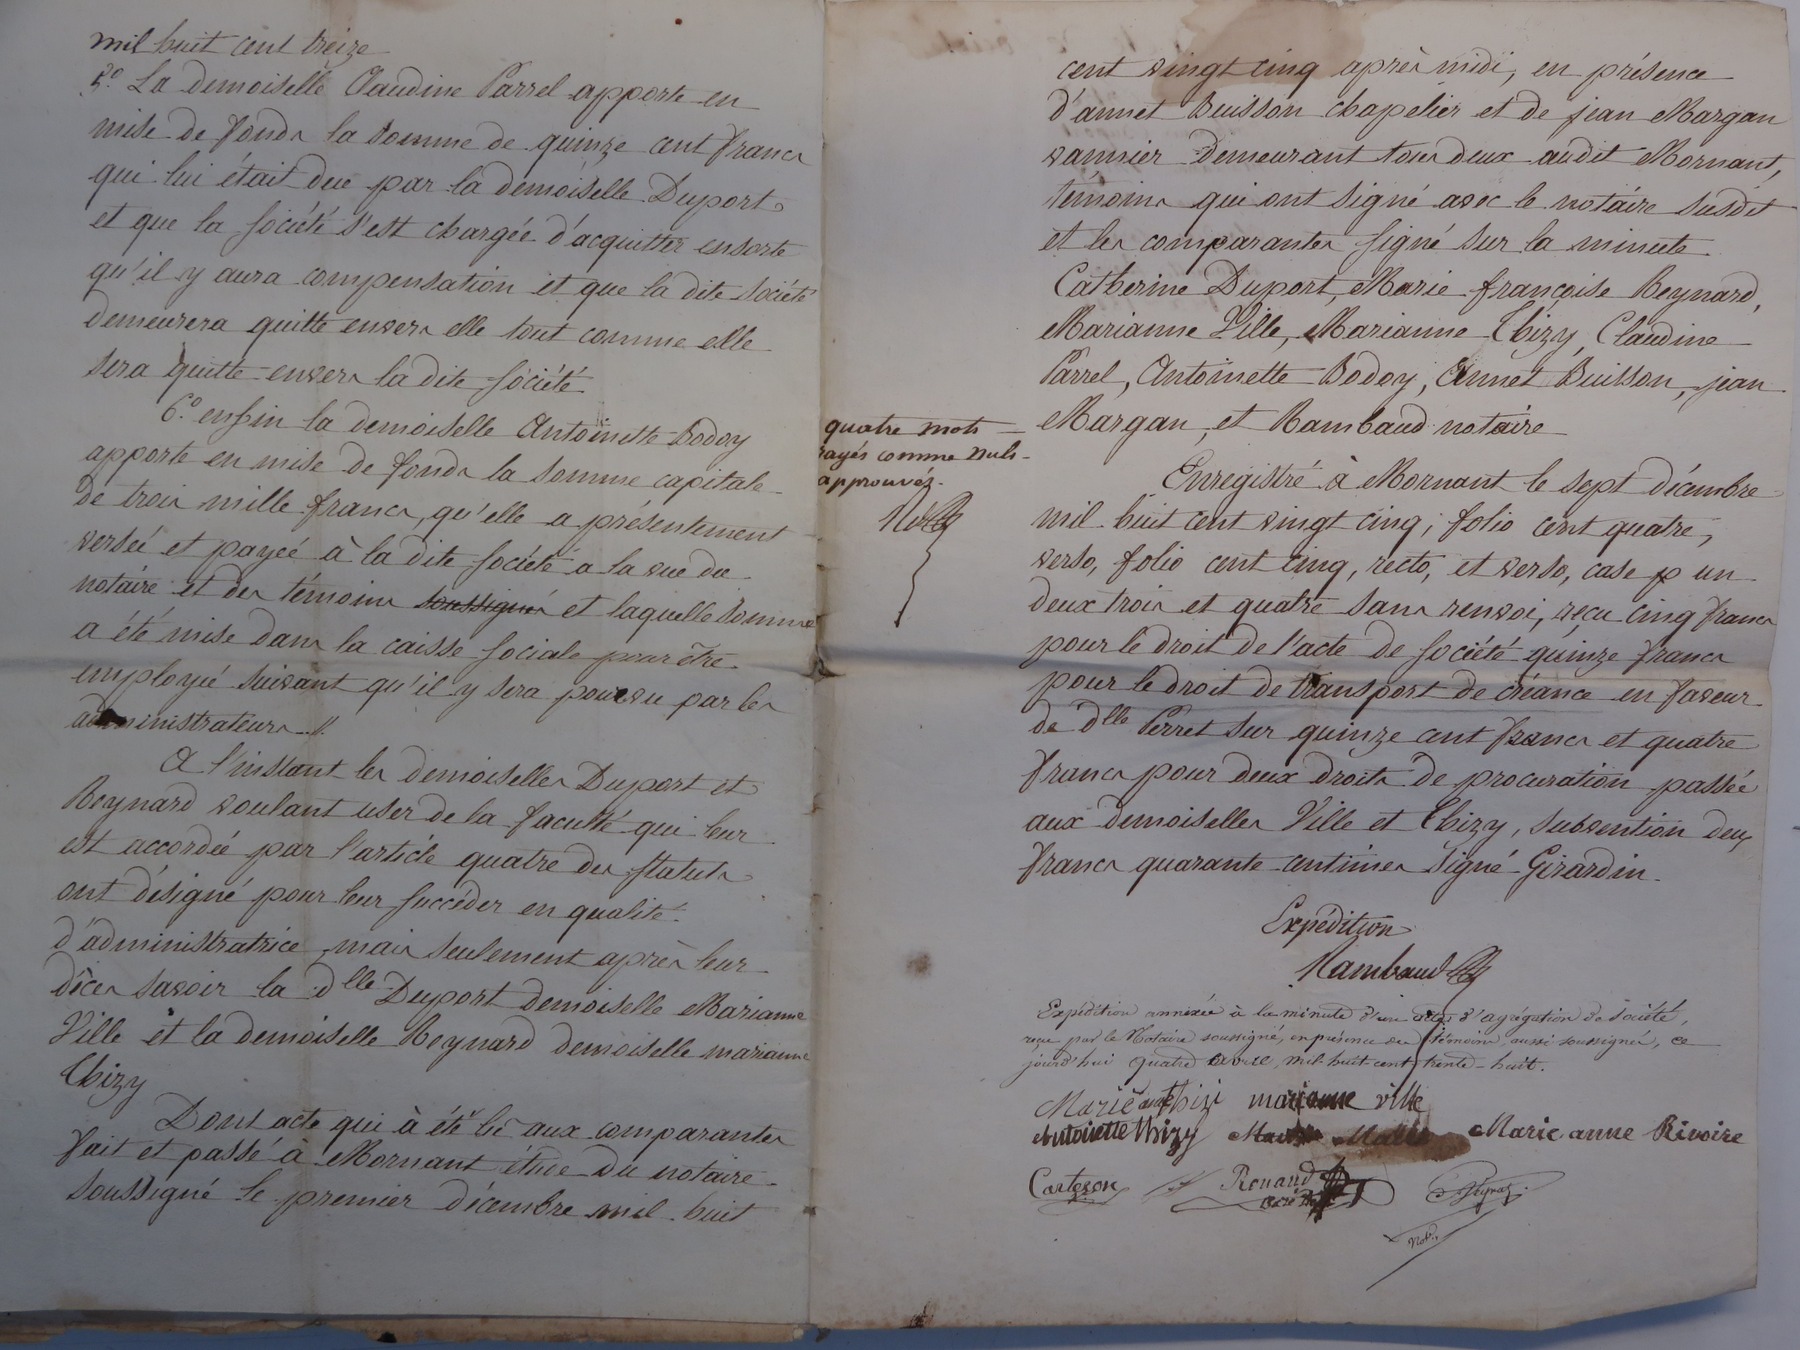 mil huit cent treize
5.º La demoiselle Claudine Parrel apporte en
mise de fonds la somme de quinze cent francs
qui lui était due par la demoiselle Duport
et que la société s'est chargée d'acquitter ensorte
qu'il y aura compensation et que la dite société
demeurera quitte envers elle tout comme elle
sera quitte envers la dite société
6.º enfin la demoiselle Antoinette Bodoy
apporte en mise de fonds la somme capitale
de trois mille francs, qu'elle a présentement
versée et payeé à la dite société a la vue du
notaire et des témoins soussignés et laquelle somme
a été mise dans la caisse sociale pour être
employé suivant qu'il y sera pourvu par les
administrateurs ./.
A l'instant les demoiselles Duport et
Reynard voulant user de la faculté qui leur
est accordée par l'article quatre des statuts
ont désigné pour leur succéder en qualité
d'administratrice, mais seulement après leur
décès savoir la dlle Duport demoiselle Marianne
Ville et la demoiselle Reynard demoiselle marianne
Thizy
Dont acte qui à été lu aux comparantes
fait et passé à Mornant étude du notaire
soussigné le premier décembre mil huit
quatre mots
rayés comme nuls
approuvés.
cent vingt cinq après midi, en présence
d'annet Buisson chapelier et de jean Margan
vannier demeurant tous deux audit Mornant,
témoins qui ont signé avec le notaire susdit
et les comparantes signé sur la minute
Catherine Duport, Marie françoise Reynard,
Marianne Ville, Marianne Thizy, Claudine
Parrel, Antoinette Bodoy, Annet Buisson, jean
Margan, et Rambaud notaire
Enregistré à Mornant le sept décembre
mil huit cent vingt cinq, folio cent quatre,
verso, folio cent cinq, recto, et verso, case p un
deux trois et quatre sans renvoi, reçu cinq francs
pour le droit de l'acte de société quinze francs
pour le droit de transport de créance en faveur
de dlle Perret sur quinze cent francs et quatre
francs pour deux droits de procuration passée
aux demoiselles Ville et Thizy, subvention deux
francs quarante centimes signé Girardin.
Expédition
Rambaud
Expédition annexée à la minute d'un acte d'agrégation de société,
reçu par le Notaire soussigné, en présence des témoins, aussi soussignés, ce
jourd'hui quatre avril, mil huit cent trente-huit.
Marie anne thizi marianne ville
Antoinette thizy Marie anne Rivoire
Carteron Renard
Not.